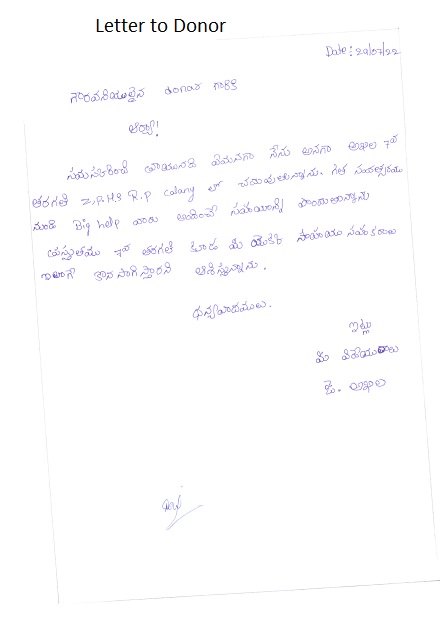 Letter to Donor
Date: 29/07/22
గౌరవనీయులైన donar గారికి
ఆర్యా!
నమస్కరించి వ్రాయునది ఏమనగా నేను అనగా అఖిల 7వ
తరగతి Z.P.H.S R.P colany లో చదువుతున్నాను. గత సంవత్సరము
నుండి Big help వారు అందించే సహాయాన్ని పొందుతున్నాను
ప్రస్తుతము 7వ తరగతి కూడా మీ యొక్క సహాయ సహకారాలు
ఇలాగే కొనసాగిస్తారని ఆశిస్తున్నాను.
ధన్యవాదములు.
ఇట్లు
మీ విధేయురాలు
జె. అఖిల